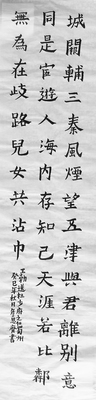 城闕輔三秦風煙望五津與君離別意
同是宦遊人海内存知己天涯若比鄰
無為在歧路兒女共沾巾
王勃送杜少府之任蜀州
癸巳年秋月書